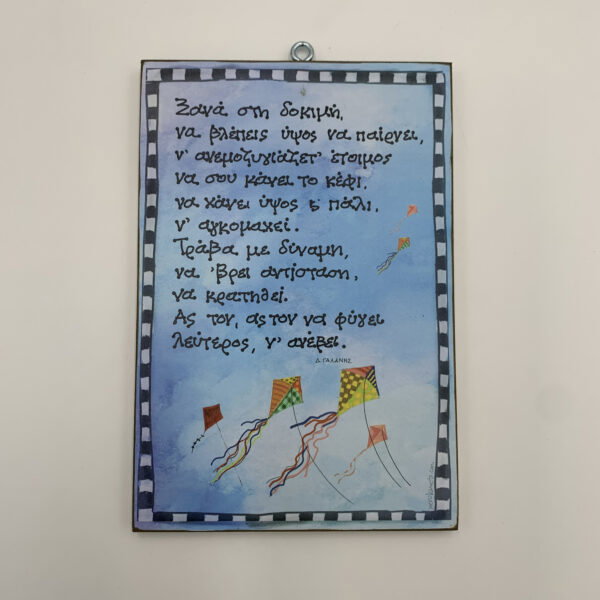 Ξανά στη δοκιμή,
να βλέπεις ύψος να παίρνει,
ν' ανεμοζυγιάζετ' έτοιμος
να σου κάνει το κέφι,
να χάνει ύψος κ πάλι,
ν' αγκομαχεί.
Τράβα με δύναμη,
να 'βρει αντίσταση,
να κρατηθεί.
Ας τον, ας τον να φύγει
λεύτερος, ν' ανέβει.
Δ. ΓΑΛΑΝΗΣ